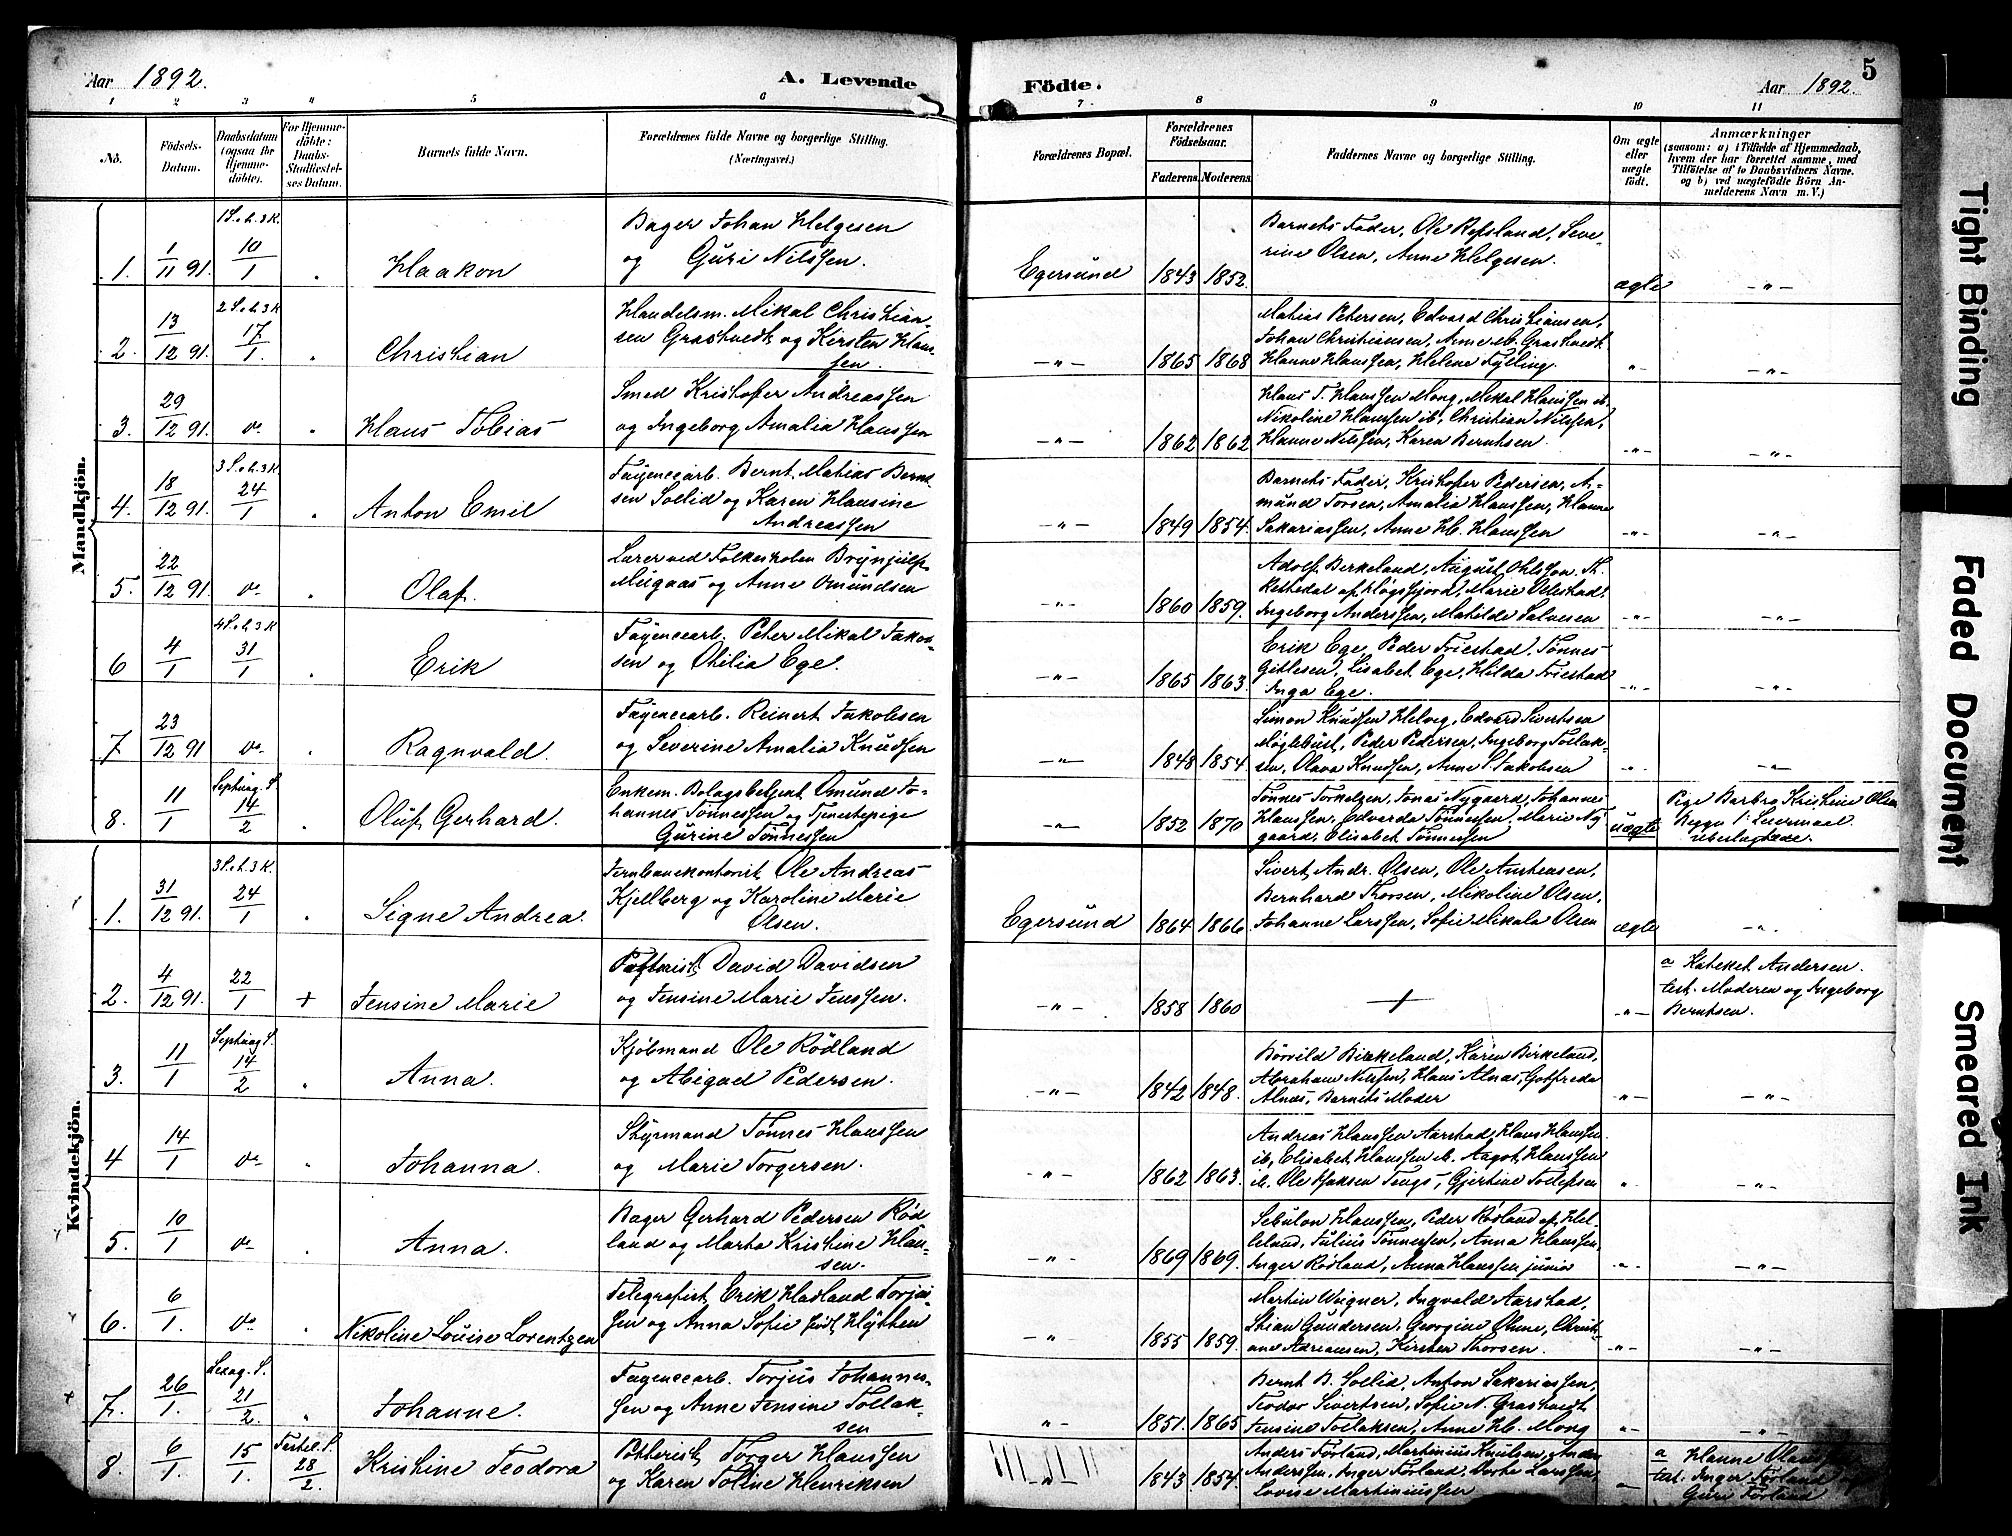 Aar 1892.
A. Levende
Födte.
Aar 1892.
5
1 2 3 4 5 6 7 8 9 10 11
No.
Födsels-
Datum.
Daabsdatum
(ogsaa for
Hjemme-
döbte).
For Hjemme-
döbte:
Daabs-
Stadfæstel-
ses Datum.
Barnets fulde Navn.
Forældrenes fulde Navne og borgerlige Stilling.
(Næringsvei.)
Forældrenes Bopæl.
Forældrenes
Födselsaar.
Faderens. Moderens.
Faddernes Navne og borgerlige Stilling.
Om ægte
eller
uægte
födt.
Anmærkninger
(saasom: a) i Tilfælde af Hjemmedaab,
hvem der har forrettet samme, med
Tilföielse af to Daabsvidners Navne.
og b) ved uægtefödte Börn An-
melderens Navn m. V.)
Mandkjön.
1. 1/11 91. 1 S. e. h. 3 K. 10/1 " Haakon
Bager Johan Helgesen
og Guri Nilssen.
Egersund 1843 1852.
Barnets Fader, Ole Refsland, Seve-
rine Olsen, Anne Helgesen.
ægte -"-
2. 13/12 91. 2 S. e. h. 3 K 17/1. " Christian
Handelsm. Mikal Christian-
sen Grastvedt og Kirsten Haus-
sen.
-"- 1865 1868
Matias Petersen, Edvard Christiansen,
Johan Christiansen, Anne M. Grastvedt
Hanne Hanssen, Helene Fylling.
-"- -"-
3. 29/12 91. do " Klaus Tobias
Smed Kristofer Andreassen
og Ingeborg Amalia Hanssen
-"- 1862 1862
Klaus T. Hanssen Mong, Mikal Hanssen ib.
Nikoline Hanssen ib, Christian Nilssen,
Hanne Nilssen, Karen Berntsen.
-"- -"-
4. 18/12 91. 3 S. e. h. 3 K 24/1 " Anton Emil
Fayencearb. Bernt Matias Bernt
sen Sollid og Karen Hansine
Andreassen
-"- 1849 1854.
Barnets Fader, Kristofer Pedersen, A-
mund Torsen, Amalia Hanssen, Hanne
Sakariassen, Anne H. Hanssen
-"- -"-
5. 22/12 91. do " Olaf.
Lærer ved Folkeskolen Brynjulf
Mugaas og Anne Omundsen
-"- 1860 1859.
Adolf Birkeland, August Ohlsson,
Ingeborg Anderssen, Mathilde Salvesen
-"- -"-
6 4/1 4 S. e. h. 3 K 31/1 " Erik
Fayencearb. Peter Mikal Jakob-
sen og Othilia Ege.
-"- 1865 1863.
Erik Ege, Peder Triestad, Tønnes
Gitlesen, Lisabet Ege, Hilda Triestad
Inga Ege.
-"- -"-
7. 23/12 91 do " Ragnvald.
Fayencearb. Reinert Jakobsen
og Severine Amalia Knudsen
-"- 1848 1854.
Simon Knudsen Helvig, Edvard Sivertsen
Møglebust, Peder Pedersen, Ingeborg Tollak-
sen, Olava Knudsen, Anne S. Jakobsen
-"- -"-
8. 11/1 Septuag. S. 14/2 " Oluf Gerhard.
Enkem. Bolagsbetjent Omund Jo-
hannes Tønnessen og Tjenestepige
Gurine Tønnessen
-"- 1852 1870
Tønnes Torkelsen, Jonas Nygaard, Johannes
Hanssen, Edvarda Tønnessen, Marie Ny
gaard, Elisabet Tønnessen
uægte
Pige Barbro Kristine Olsen
Kvindekjön.
1. 31/12 91. 3 S. e. h. 3 K. 24/1 " Signe Andrea.
Jernbanekontorist Ole Andreas
Kjellberg og Karoline Marie
Olsen.
Egersund 1864 1866.
Sivert Andr. Olsen, Ole Austensen,
Bernhard Thorsen, Mikoline Olsen,
Johanne Larssen, Sofie Mikala Olsen
ægte -"-
2. 4/12 91. 22/1 + Jensine Marie
David Davidsen
og Jensine Marie Jenssen.
-"- 1858 1860 + -"-
a Kateket Andersen.
test. Moderen og Ingeborg
Berntsen.
3. 11/1 Septuag S. 14/2 " Anna.
Kjøbmand Ole Rødland
og Abigael Pedersen.
-"- 1842 1848.
Børrild Birkeland, Karen Birkeland,
Abraham Nilssen, Hans Alnæs, Gotfreda
Alnæs, Barnets Moder
-"- -"-
4 14/1 do " Johanna.
Styrmand Tønnes Hanssen
og Marie Torgersen.
-"- 1862 1863.
Andreas Hanssen Aarstad, Hans Hanssen
ib, Elisabet Hanssen ib. Aagot Hanssen
ib. Ole Isaksen Tengs, Gjertine Tollefsen
" -"-
5. 10/1 do " Anna.
Bager Gerhard Pedersen Rød
land og Marta Kristine Han-
sen.
-"- 1869 1869.
Sebulon Hanssen, Peder Rødland af Hel-
leland, Julius Tønnessen, Anna Hanssen,
Inger Rødland, Anna Hanssen junior
-"- -"-
6. 6/1. do " Nikoline Louise Lorentzen
Telegrafist Erik Hadland Torjus-
sen og Anna Sofie født Hytten
-"- 1855 1859.
Martin Weigner, Ingvald Aarstad,
Stian Gundersen, Georgine Ohne, Christi-
ane Adriansen, Kirsten Thorsen.
-"- -"-
7. 26/1. Sexag. S. 21/2. " Johanne.
Fayencearb. Torjus Johannes-
sen og Anne Jensine Tollak-
sen
" 1851. 1865
Bernt B. Sollid, Anton Sakariassen,
Teodor Sivertsen, Sofie N. Grastvedt
Jensine Tollaksen, Anne H. Mong
-"- -"-
8. 6/1. 15/1. Fastel. S. 28/2. Kristine Teodora
Potterist Torger Hanssen
og Karen Toline Henriksen
" 1843 1854.
Anders Førland, Martinius Knudsen, Anders
Anderssen, Inger Førland, Dorte Larssen,
Lovise Martiniussen
-"-
a Hanne
test. Inger Førland og
Guri Førland
Tight Binding
Faded Document
Smeared Ink